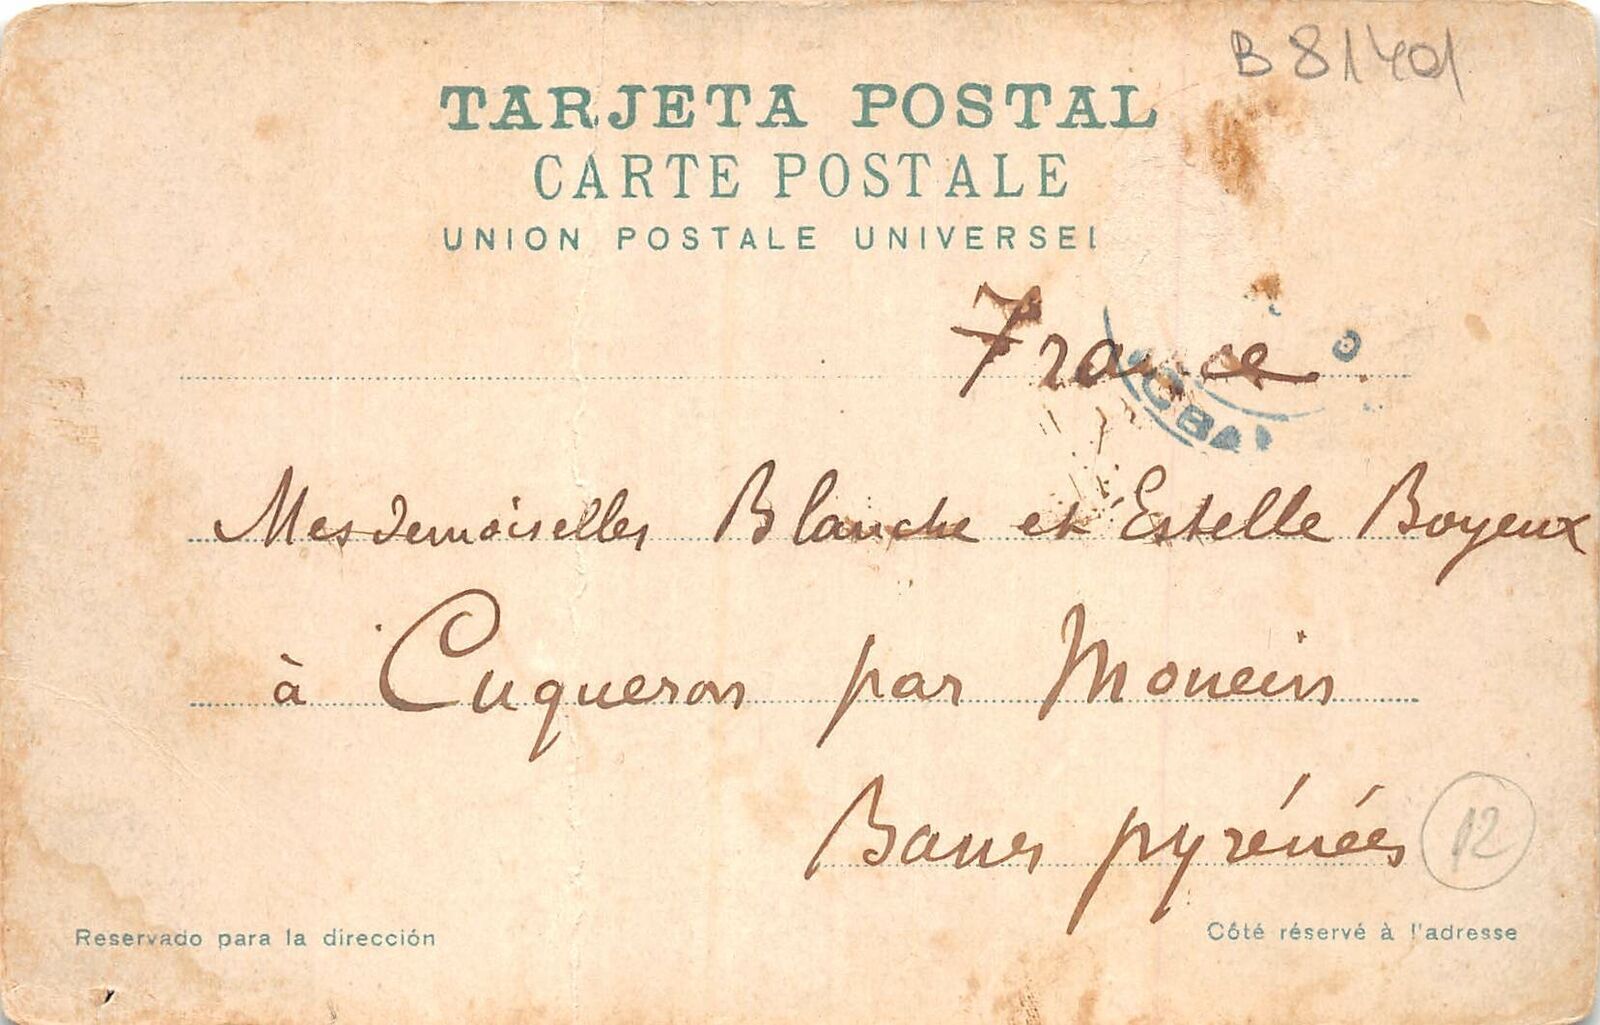 B 81401
TARJETA POSTAL
CARTE POSTALE
UNION POSTALE UNIVERSEL
France
CBA
Mesdemoiselles Blanche et Estelle Boyeux
à Cuqueron par Monein
Basses pyrénées
12
Reservado para la dirección
Côté réservé à l'adresse